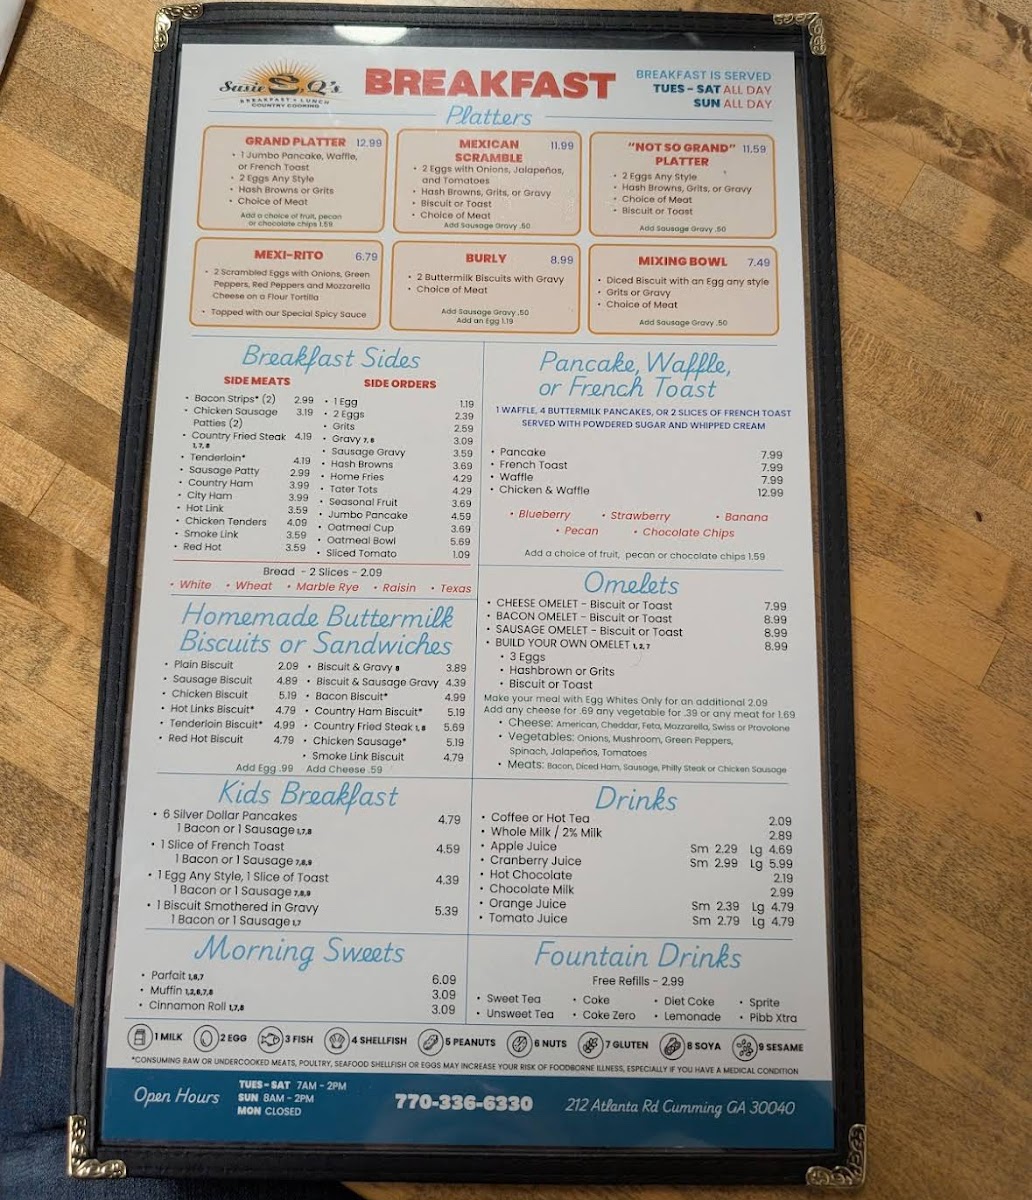 Susie Q's
BREAKFAST & LUNCH
COUNTRY COOKING
BREAKFAST
BREAKFAST IS SERVED
TUES - SAT ALL DAY
SUN ALL DAY
Platters
GRAND PLATTER 12.99
• 1 Jumbo Pancake, Waffle,
or French Toast
• 2 Eggs Any Style
• Hash Browns or Grits
• Choice of Meat
Add a choice of fruit, pecan
or chocolate chips 1.59
MEXICAN 11.99
SCRAMBLE
• 2 Eggs with Onions, Jalapeños,
and Tomatoes
• Hash Browns, Grits, or Gravy
• Biscuit or Toast
• Choice of Meat
Add Sausage Gravy .50
"NOT SO GRAND" 11.59
PLATTER
• 2 Eggs Any Style
• Hash Browns, Grits, or Gravy
• Choice of Meat
• Biscuit or Toast
Add Sausage Gravy .50
MEXI-RITO 6.79
• 2 Scrambled Eggs with Onions, Green
Peppers, Red Peppers and Mozzarella
Cheese on a Flour Tortilla
• Topped with our Special Spicy Sauce
BURLY 8.99
• 2 Buttermilk Biscuits with Gravy
• Choice of Meat
Add Sausage Gravy .50
Add an Egg 1.19
MIXING BOWL 7.49
• Diced Biscuit with an Egg any style
• Grits or Gravy
• Choice of Meat
Add Sausage Gravy .50
Breakfast Sides
SIDE MEATS
• Bacon Strips* (2) 2.99
• Chicken Sausage 3.19
Patties (2)
• Country Fried Steak 4.19
1, 7, 8
• Tenderloin* 4.19
• Sausage Patty 2.99
• Country Ham 3.99
• City Ham 3.99
• Hot Link 3.59
• Chicken Tenders 4.09
• Smoke Link 3.59
• Red Hot 3.59
SIDE ORDERS
• 1 Egg 1.19
• 2 Eggs 2.39
• Grits 2.59
• Gravy 7, 8 3.09
• Sausage Gravy 3.59
• Hash Browns 3.69
• Home Fries 4.29
• Tater Tots 4.29
• Seasonal Fruit 3.69
• Jumbo Pancake 4.59
• Oatmeal Cup 3.69
• Oatmeal Bowl 5.69
• Sliced Tomato 1.09
Bread - 2 Slices - 2.09
• White • Wheat • Marble Rye • Raisin • Texas
Pancake, Waffle,
or French Toast
1 WAFFLE, 4 BUTTERMILK PANCAKES, OR 2 SLICES OF FRENCH TOAST
SERVED WITH POWDERED SUGAR AND WHIPPED CREAM
• Pancake 7.99
• French Toast 7.99
• Waffle 7.99
• Chicken & Waffle 12.99
• Blueberry • Strawberry • Banana
• Pecan • Chocolate Chips
Add a choice of fruit, pecan or chocolate chips 1.59
Homemade Buttermilk
Biscuits or Sandwiches
• Plain Biscuit 2.09
• Sausage Biscuit 4.89
• Chicken Biscuit 5.19
• Hot Links Biscuit* 4.79
• Tenderloin Biscuit* 4.99
• Red Hot Biscuit 4.79
• Biscuit & Gravy 8 3.89
• Biscuit & Sausage Gravy 4.39
• Bacon Biscuit* 4.99
• Country Ham Biscuit* 5.19
• Country Fried Steak 1, 8 5.69
• Chicken Sausage* 5.19
• Smoke Link Biscuit 4.79
Add Egg .99 Add Cheese .59
Omelets
• CHEESE OMELET - Biscuit or Toast 7.99
• BACON OMELET - Biscuit or Toast 8.99
• SAUSAGE OMELET - Biscuit or Toast 8.99
• BUILD YOUR OWN OMELET 1, 2, 7 8.99
• 3 Eggs
• Hashbrown or Grits
• Biscuit or Toast
Make your meal with Egg Whites Only for an additional 2.09
Add any cheese for .69 any vegetable for .39 or any meat for 1.69
• Cheese: American, Cheddar, Feta, Mozzarella, Swiss or Provolone
• Vegetables: Onions, Mushroom, Green Peppers,
Spinach, Jalapeños, Tomatoes
• Meats: Bacon, Diced Ham, Sausage, Philly Steak or Chicken Sausage
Kids Breakfast
• 6 Silver Dollar Pancakes 4.79
1 Bacon or 1 Sausage 1,7,8
• 1 Slice of French Toast 4.59
1 Bacon or 1 Sausage 7,8,9
• 1 Egg Any Style, 1 Slice of Toast 4.39
1 Bacon or 1 Sausage 7,8,9
• 1 Biscuit Smothered in Gravy 5.39
1 Bacon or 1 Sausage 1,7
Drinks
• Coffee or Hot Tea 2.09
• Whole Milk / 2% Milk 2.89
• Apple Juice Sm 2.29 Lg 4.69
• Cranberry Juice Sm 2.99 Lg 5.99
• Hot Chocolate 2.19
• Chocolate Milk 2.99
• Orange Juice Sm 2.39 Lg 4.79
• Tomato Juice Sm 2.79 Lg 4.79
Morning Sweets
• Parfait 1,6,7 6.09
• Muffin 1,2,6,7,8 3.09
• Cinnamon Roll 1,7,8 3.09
Fountain Drinks
Free Refills - 2.99
• Sweet Tea • Coke • Diet Coke • Sprite
• Unsweet Tea • Coke Zero • Lemonade • Pibb Xtra
1 MILK 2 EGG 3 FISH 4 SHELLFISH 5 PEANUTS 6 NUTS 7 GLUTEN 8 SOYA 9 SESAME
*CONSUMING RAW OR UNDERCOOKED MEATS, POULTRY, SEAFOOD SHELLFISH OR EGGS MAY INCREASE YOUR RISK OF FOODBORNE ILLNESS, ESPECIALLY IF YOU HAVE A MEDICAL CONDITION
Open Hours
TUES - SAT 7AM - 2PM
SUN 8AM - 2PM
MON CLOSED
770-336-6330
212 Atlanta Rd Cumming GA 30040